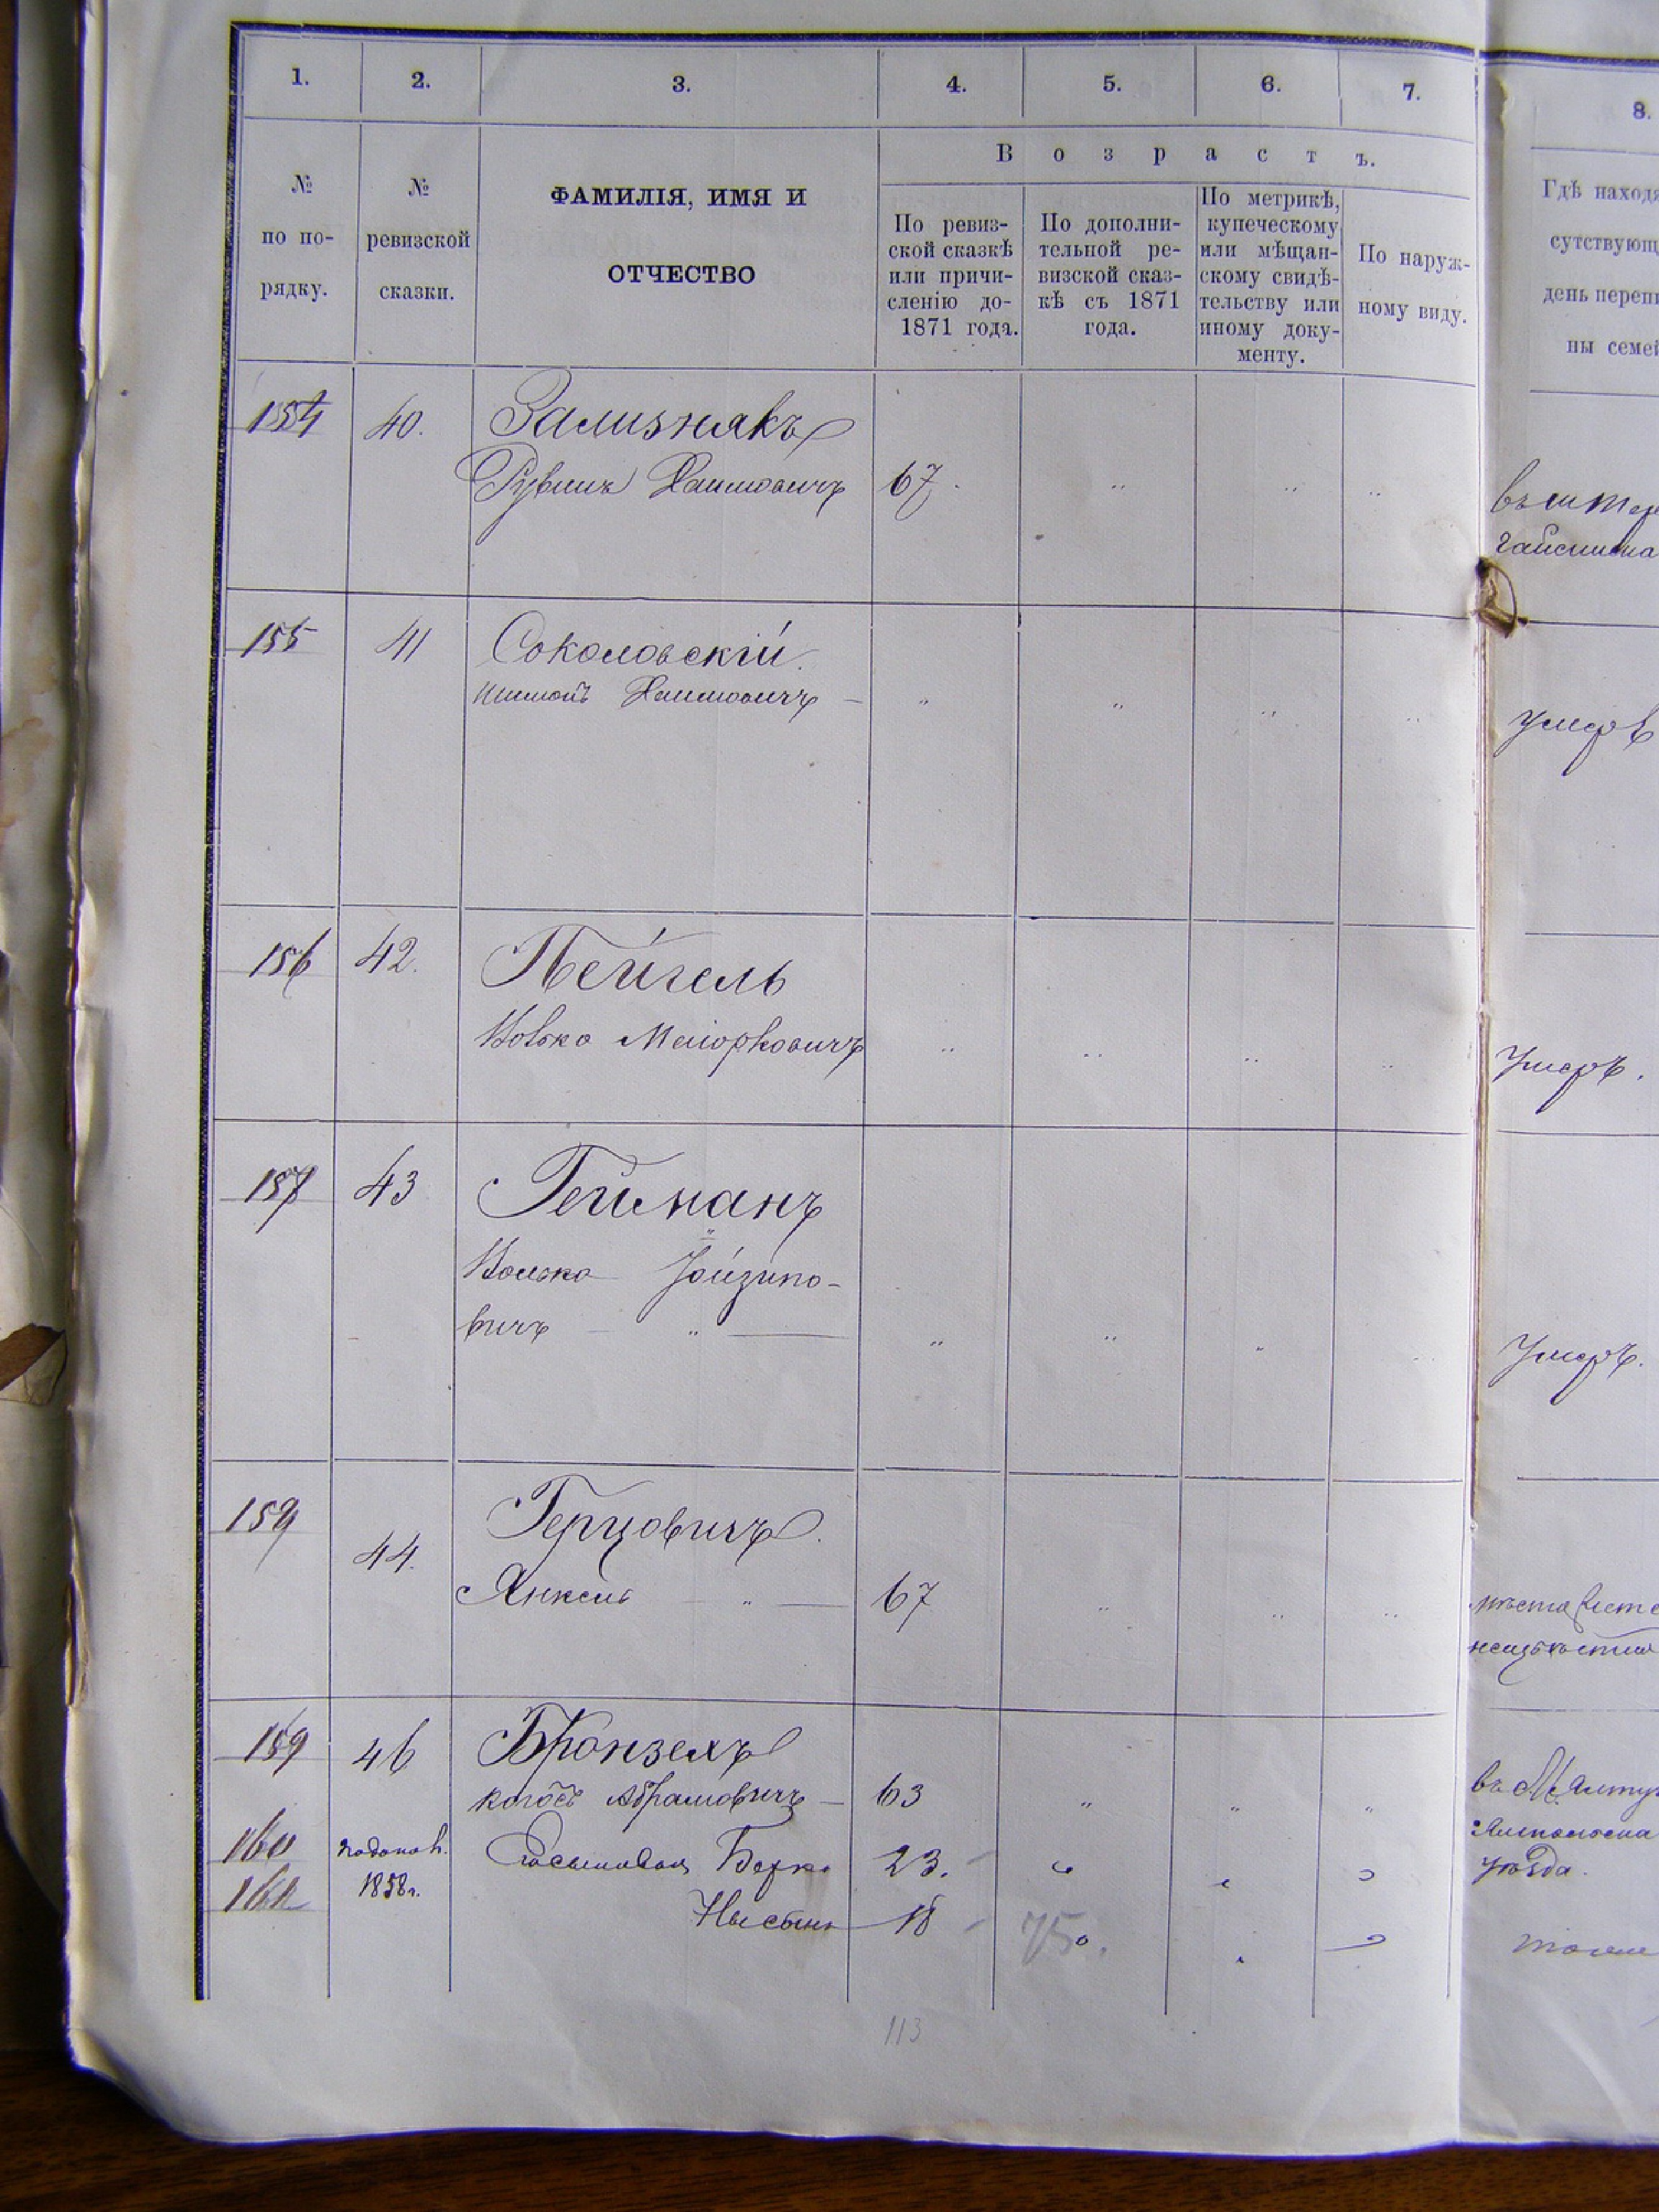 1. 2. 3. 4. 5. 6. 7. 8.
№ по по-рядку.
№ ревизской сказки.
ФАМИЛІЯ, ИМЯ И
ОТЧЕСТВО
В о з р а с т ъ.
По ревиз-
ской сказкѣ
или причи-
сленію до-
1871 года.
По дополни-
тельной ре-
визской сказ-
кѣ съ 1871
года.
По метрикѣ,
купеческому
или мѣщан-
скому свидѣ-
тельству или
иному доку-
менту.
По наруж-
ному виду.
Гдѣ наход
сутствующ
день переп
ны семе
154 40. Зализнякъ
Рувинъ Хаимовичъ 67
въ
155 41 Соколовскій.
Хаимовичъ
умеръ
156 42. Пейгель
Вовко Меіорковичъ
Умеръ.
157 43 Гейманъ
Волько Іойзипо-
вичъ
Умеръ.
159 44. Герцовичъ.
Янкель 67
159 46 Бронзелъ
Абрамовичъ 63
въ М.
160 23.
уѣзда.
1858 г.
18
75
113